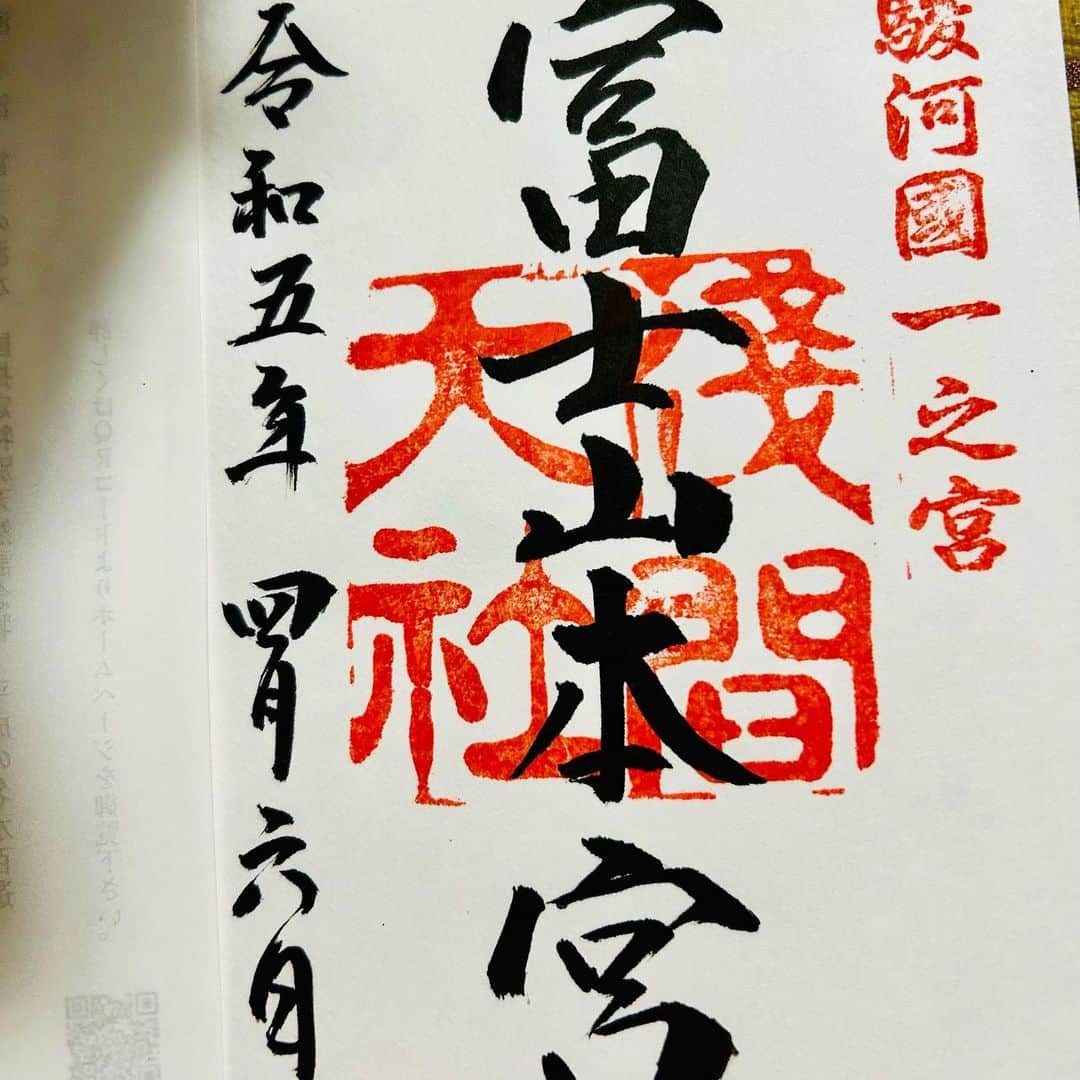 駿河國一之宮
富士山本宮
淺間
天社
令和五年 四月六日